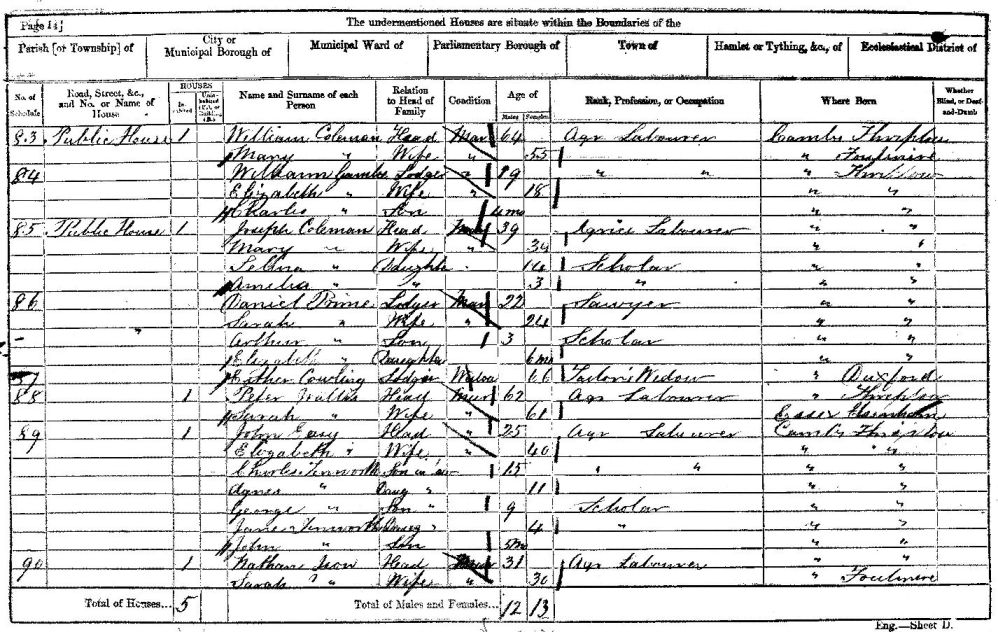 Page 14]
The undermentioned Houses are situate within the Boundaries of the
Parish [or Township] of City or Municipal Borough of Municipal Ward of Parliamentary Borough of Town of Hamlet or Tything, &c., of Ecclesiastical District of
No. of Schedule Road, Street, &c., and No. or Name of House HOUSES Inhabited Name and Surname of each Person Relation to Head of Family Condition Age of Males Females Rank, Profession, or Occupation Where Born Whether Blind, or Deaf-and-Dumb
83 Public House 1 William Coleman Head Mar 64 Agr Labourer Cambs Thriplow
Mary " Wife " 53 " Foulmire
84 William Gamble Lodger " 19 " " " Thriplow
Elizabeth " Wife " 18 " "
Charles " Son 4 mo " "
85 Public House 1 Joseph Coleman Head Mar 39 Agricl Labourer " "
Mary " Wife " 34 " "
Selina " Daughter 14 Scholar " "
Amelia " " 3 " " "
86 Daniel Prime Lodger Mar 22 Sawyer " "
Sarah " Wife " 24 " "
Arthur " Son 3 Scholar " "
Elizabeth " Daughter 6 mo " "
87 Esther Cowling Lodger Widow 66 Tailor's Widow " Duxford
88 1 Peter Wallis Head Mar 62 Agr Labourer " Thriplow
Sarah " Wife " 61 Essex
89 1 John Easy Head " 25 Agr Labourer Cambs Thriplow
Elizabeth " Wife " 40 " "
Charles Son in law 15 " " " "
Agnes " Daug " 11 " "
George " Son " 9 Scholar " "
Jane " 4 " " "
John " Son 5 mo " "
90 1 Nathan Ison Head Mar 31 Agr Labourer " "
Sarah " Wife " 30 " Foulmire
Total of Houses... 5 Total of Males and Females... 12 13
Eng.—Sheet D.